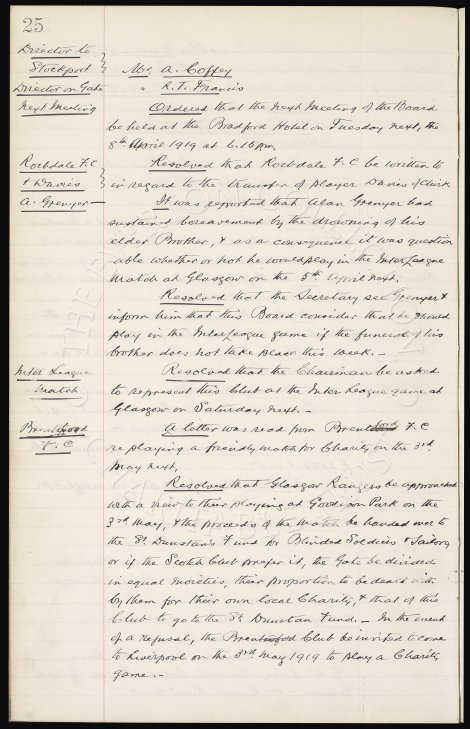 25
Director to
Stockport Mr. A. Coffey
Director on Gate " R. T. Francis
Next Meeting Ordered that the next Meeting of the Board
be held at the Bradford Hotel on Tuesday next, the
8th April 1919 at 6.15 pm.
Rochdale F.C Resolved that Rochdale F.C be written to
& Davies in regard to the transfer of player Davies of
A. Grenyer — It was reported that Alan Grenyer had
sustained bereavement by the drowning of his
elder Brother, & as a consequence it was question
able whether or not he would play in the InterLeague
Match at Glasgow on the 5th April next.
Resolved that the Secretary see Grenyer &
inform him that this Board consider that he should
play in the InterLeague game if the funeral of his
brother does not take place this week. —
Inter League Resolved that the Chairman be asked
Match to represent this Club at the Inter League game at
Glasgow on Saturday next —
Brentford A letter was read from Brentford F.C
F.C re playing a friendly match for Charity on the 3rd
May next,
Resolved that Glasgow Rangers be approached
with a view to their playing at Goodison Park on the
3rd May, & the proceeds of the Match be handed over to
the St Dunstan's Fund for Blinded Soldiers & Sailors
or if the Scotch Club prefer it, the Gate be divided
in equal moieties, their proportion to be dealt with
by them for their own local Charity, & that of this
Club to go to the St. Dunstan Fund. — In the event
of a refusal, the Brentford Club be invited to come
to Liverpool on the 3rd May 1919 to play a Charity
game. —